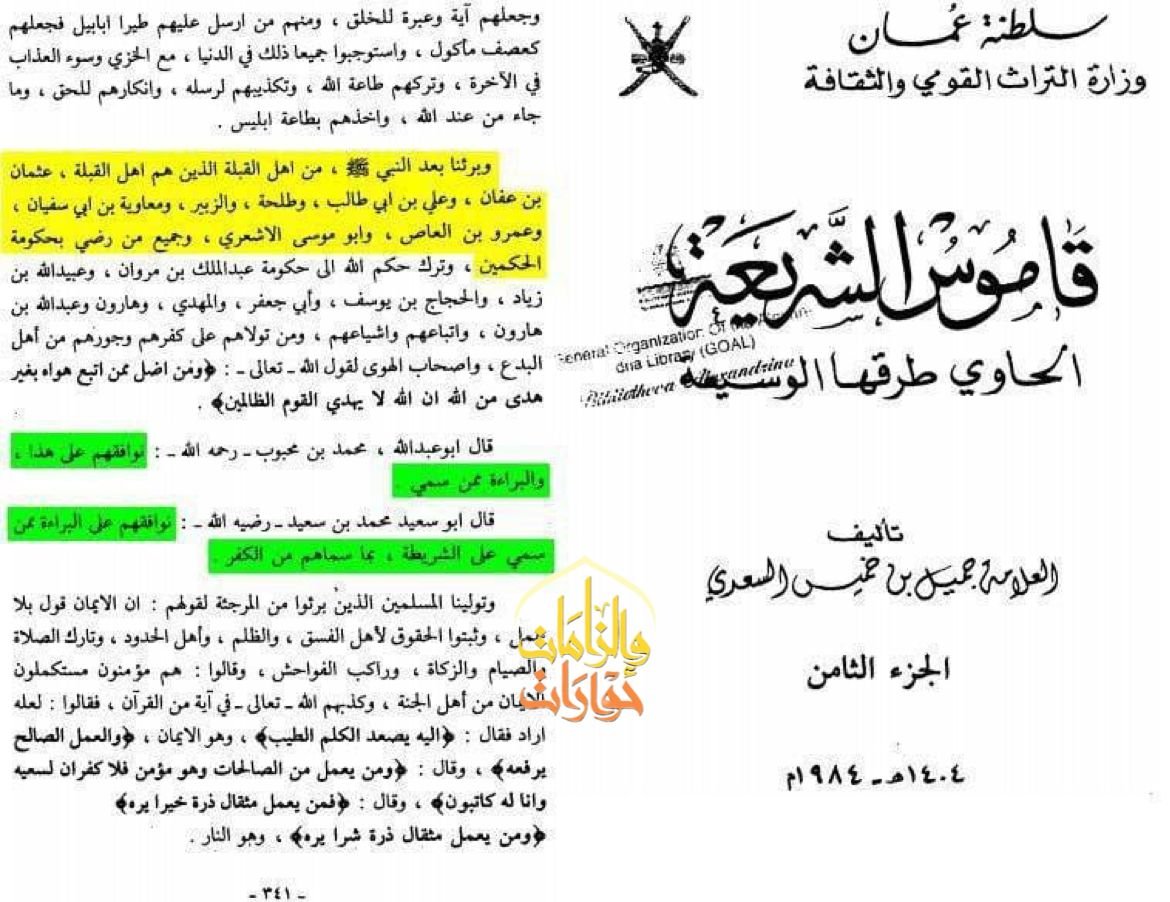 سلطنة عُمان
وزارة التراث القومي والثقافة
قاموس الشريعة
الحاوي طرقها الوسيعة
General Organization Of the Alexan-
dria Library (GOAL)
Bibliotheca Alexandrina
تأليف
العلامة جميل بن خميس السعدي
الجزء الثامن
١٤٠٤هـ ـ ١٩٨٤م
وجعلهم آية وعبرة للخلق ، ومنهم من ارسل عليهم طيرا ابابيل فجعلهم
كعصف مأكول ، واستوجبوا جميعا ذلك في الدنيا ، مع الخزي وسوء العذاب
في الآخرة ، وتركهم طاعة الله ، وتكذيبهم لرسله ، وانكارهم للحق ، وما
جاء من عند الله ، واخذهم بطاعة ابليس .
وبرئنا بعد النبي ﷺ ، من اهل القبلة الذين هم اهل القبلة ، عثمان
بن عفان ، وعلي بن ابي طالب ، وطلحة ، والزبير ، ومعاوية بن ابي سفيان ،
وعمرو بن العاص ، وابو موسى الاشعري ، وجميع من رضي بحكومة
الحكمين ، وترك حكم الله الى حكومة عبدالملك بن مروان ، وعبيدالله بن
زياد ، والحجاج بن يوسف ، وأبي جعفر ، والمهدي ، وهارون وعبدالله بن
هارون ، واتباعهم واشياعهم ، ومن تولاهم على كفرهم وجورهم من أهل
البدع ، واصحاب الهوى لقول الله ـ تعالى ـ : ﴿ومن اضل ممن اتبع هواه بغير
هدى من الله ان الله لا يهدي القوم الظالمين﴾ .
قال ابوعبدالله ، محمد بن محبوب ـ رحمه الله ـ : نوافقهم على هذا ،
والبراءة ممن سمي .
قال ابو سعيد محمد بن سعيد ـ رضيه الله ـ : نوافقهم على البراءة ممن
سمي على الشريطة ، بما سماهم من الكفر .
وتولينا المسلمين الذين برئوا من المرجئة لقولهم : ان الايمان قول بلا
عمل ، وثبتوا الحقوق لأهل الفسق ، والظلم ، وأهل الحدود ، وتارك الصلاة
والصيام والزكاة ، وراكب الفواحش ، وقالوا : هم مؤمنون مستكملون
الايمان من أهل الجنة ، وكذبهم الله ـ تعالى ـ في آية من القرآن ، فقالوا : لعله
اراد فقال : ﴿اليه يصعد الكلم الطيب﴾ ، وهو الايمان ، ﴿والعمل الصالح
يرفعه﴾ ، وقال : ﴿ومن يعمل من الصالحات وهو مؤمن فلا كفران لسعيه
وانا له كاتبون﴾ ، وقال : ﴿فمن يعمل مثقال ذرة خيرا يره﴾
﴿ومن يعمل مثقال ذرة شرا يره﴾ ، وهو النار .
ـ ٣٤١ ـ
حوارات
وإلزامات